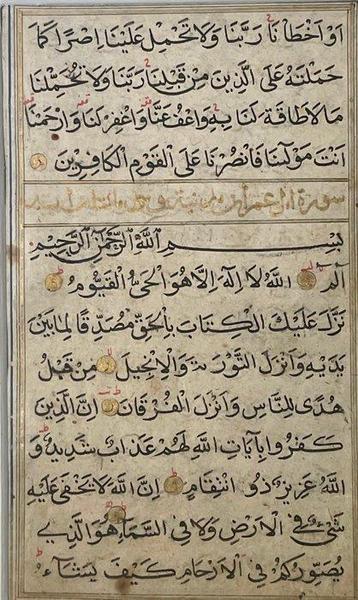 او اخطانا ربنا ولا تحمل علينا اصرا كما
حملته على الذين من قبلنا ربنا ولا تحملنا
ما لا طاقة لنا به واعف عنا واغفر لنا وارحمنا
انت مولينا فانصرنا على القوم الكافرين
سورة ال عمران
بسم الله الرحمن الرحيم
الم الله لا اله الا هو الحي القيوم
نزل عليك الكتاب بالحق مصدقا لما بين
يديه وانزل التورية والانجيل من قبل
هدى للناس وانزل الفرقان ان الذين
كفروا بايات الله لهم عذاب شديد و
الله عزيز ذو انتقام ان الله لا يخفى عليه
شئ في الارض ولا في السماء هو الذي
يصوركم في الارحام كيف يشاء